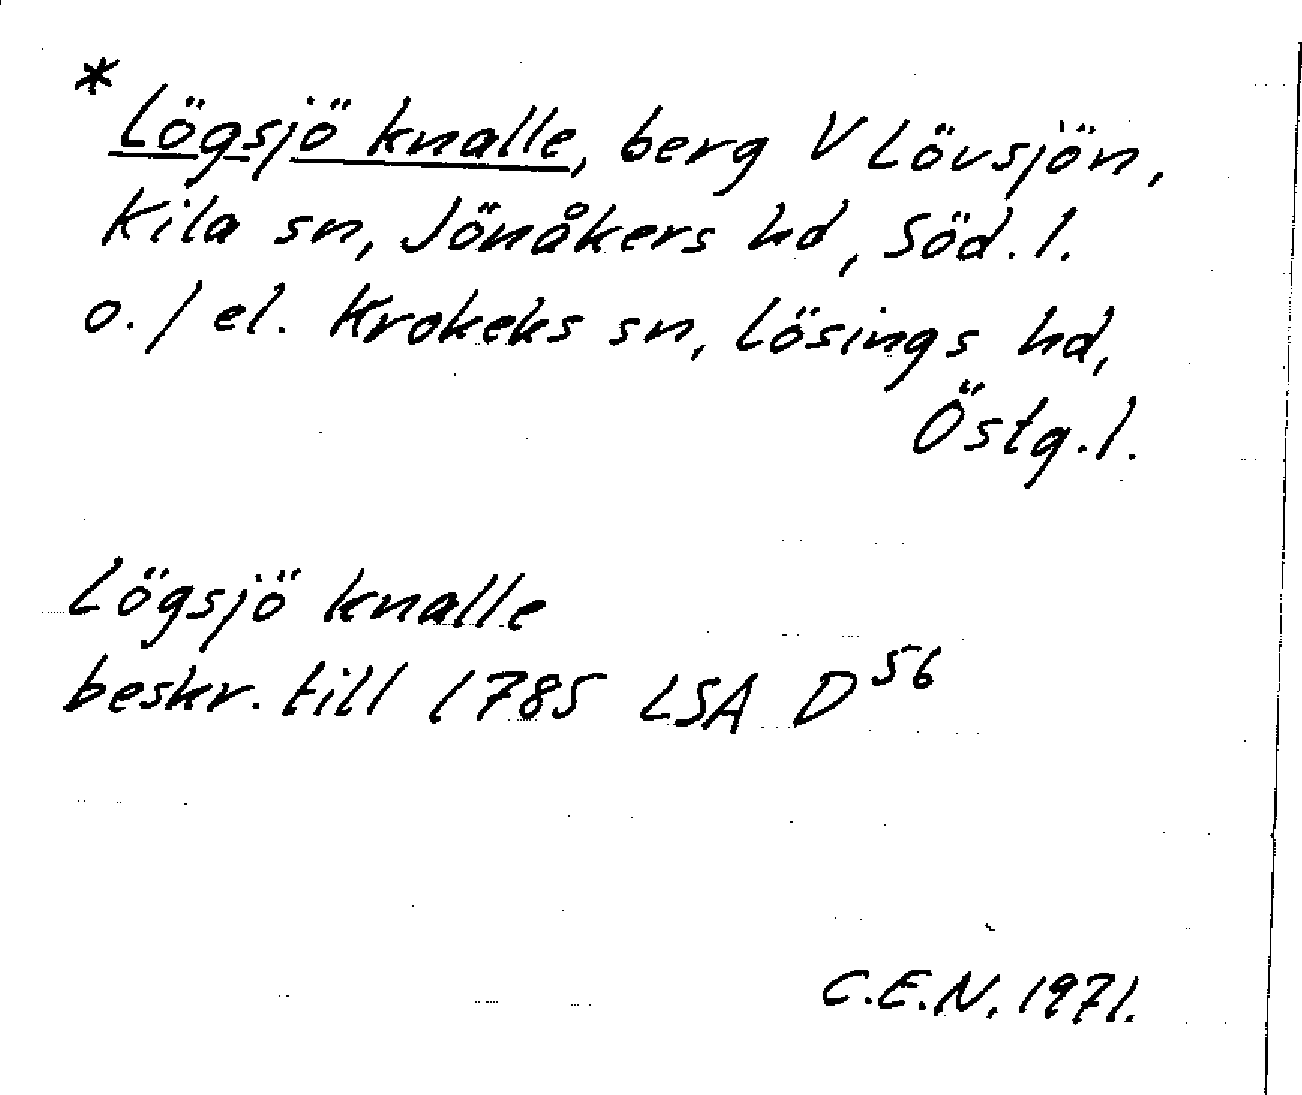 * Lögsjö knalle, berg V Lövsjön,
Kila sn, Jönåkers hd, Söd. l.
o. / el. Krokeks sn, Lösings hd,
Östg. l.
Lögsjö knalle
beskr. till 1785 LSA D 56
C.E.N. 1971.